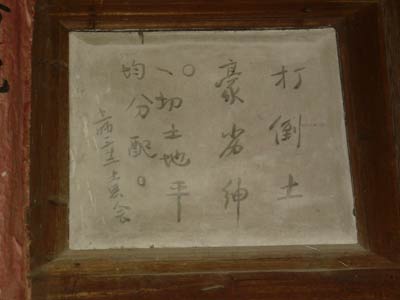 打倒土
豪劣绅
○一切土地平
均分配。
士兵会